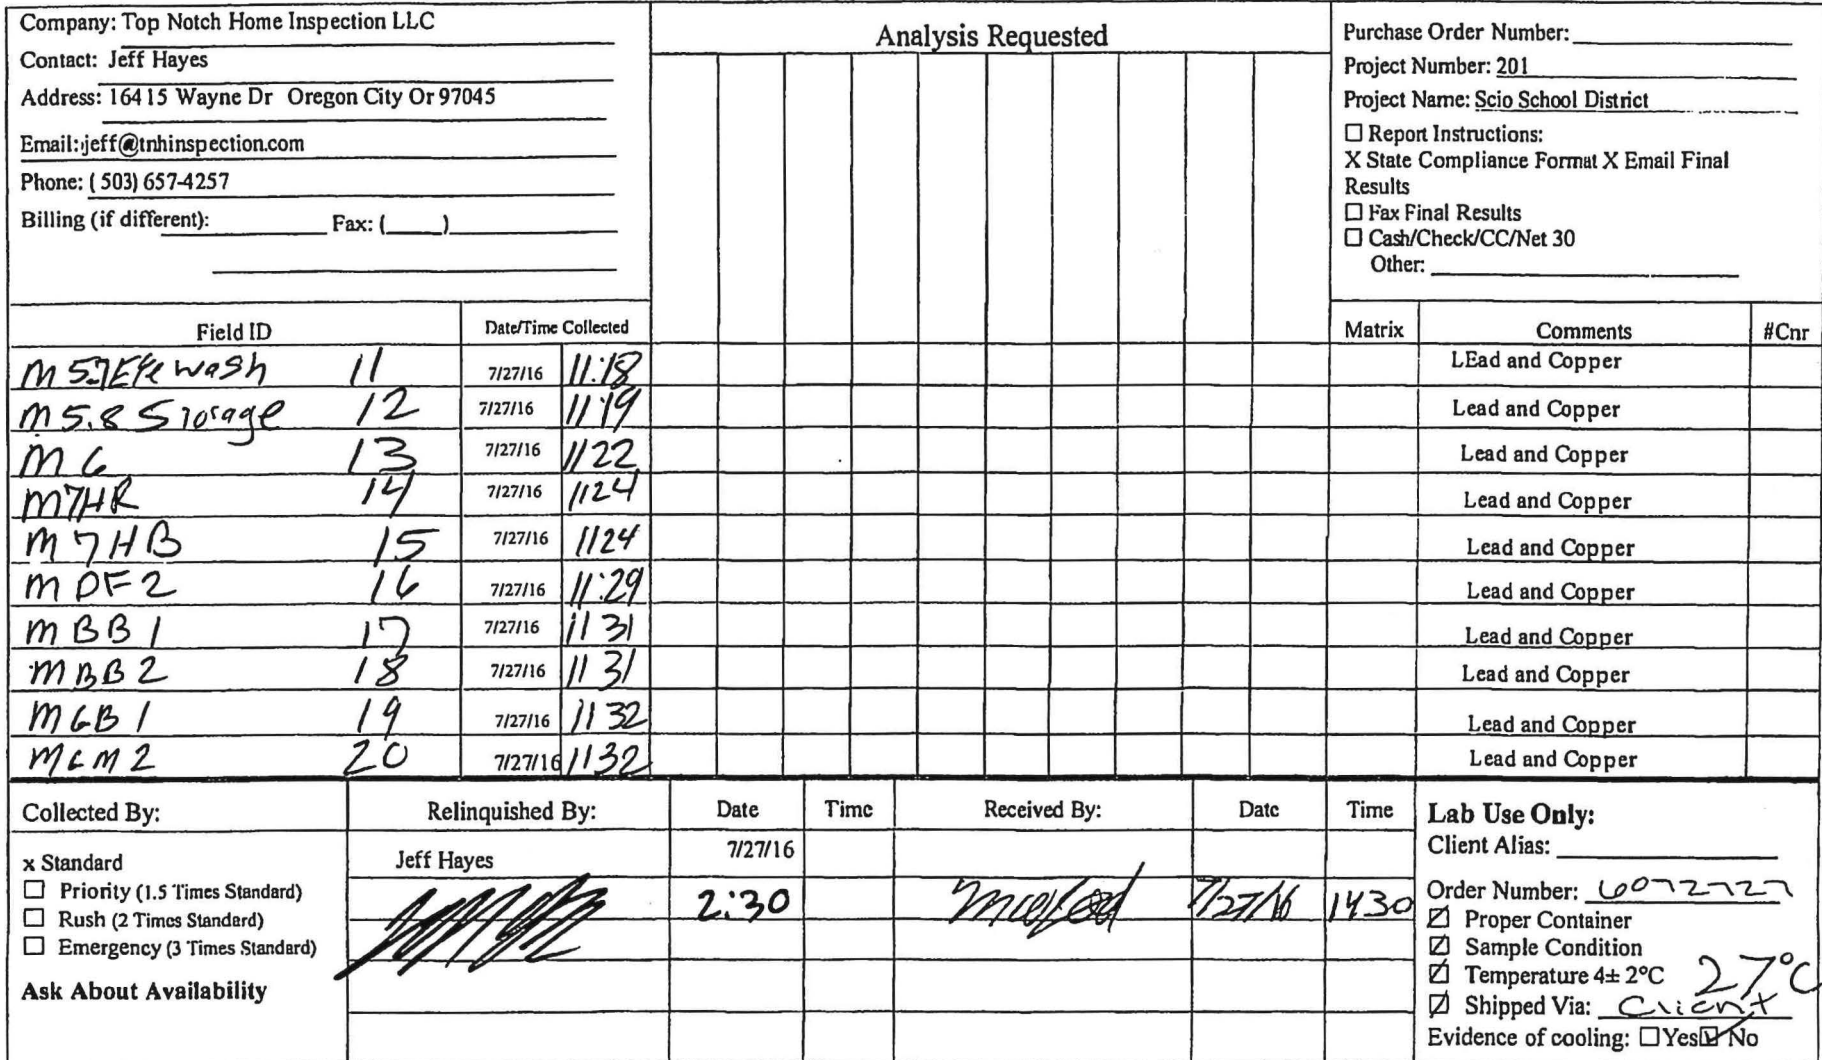 Company: Top Notch Home Inspection LLC
Contact: Jeff Hayes
Address: 16415 Wayne Dr Oregon City Or 97045
Email: jeff@tnhinspection.com
Phone: (503) 657-4257
Billing (if different): Fax: ( )
Analysis Requested
Purchase Order Number:
Project Number: 201
Project Name: Scio School District
☐ Report Instructions:
X State Compliance Format X Email Final
Results
☐ Fax Final Results
☐ Cash/Check/CC/Net 30
Other:
Field ID Date/Time Collected Matrix Comments #Cnr
M 5.7 Eye wash 11 7/27/16 11:18 LEad and Copper
M 5.8 Storage 12 7/27/16 11 19 Lead and Copper
M 6 13 7/27/16 1122 Lead and Copper
M7HR 14 7/27/16 1124 Lead and Copper
M 7 H B 15 7/27/16 1124 Lead and Copper
M DF 2 16 7/27/16 11:29 Lead and Copper
M BB 1 17 7/27/16 11 31 Lead and Copper
M BB 2 18 7/27/16 11 31 Lead and Copper
M GB 1 19 7/27/16 11 32 Lead and Copper
20 7/27/16 1132 Lead and Copper
Collected By: Relinquished By: Date Time Received By: Date Time
x Standard Jeff Hayes 7/27/16
☐ Priority (1.5 Times Standard) 2:30 7/27/16 1430
☐ Rush (2 Times Standard)
☐ Emergency (3 Times Standard)
Ask About Availability
Lab Use Only:
Client Alias:
Order Number: 6072727
☑ Proper Container
☑ Sample Condition
☑ Temperature 4± 2°C 27°C
☑ Shipped Via: Client
Evidence of cooling: ☐Yes ☑No